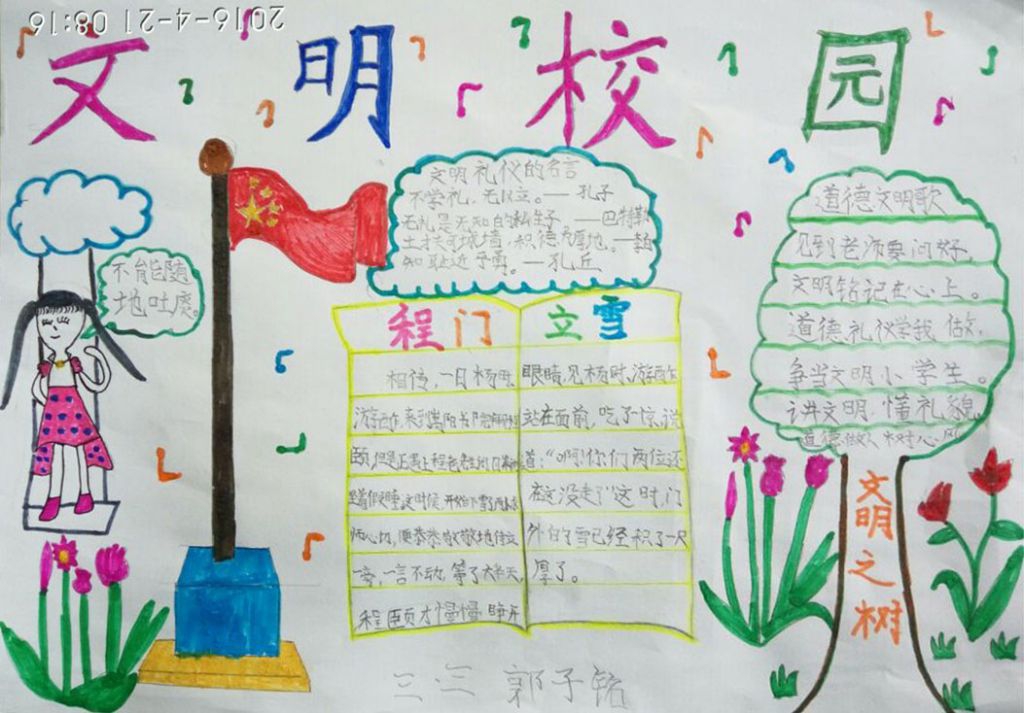 2016-4-21 08:16
文明校园
文明礼仪的名言
不学礼,无以立。——孔子
无礼是无知的私生子。——巴特勒
知耻近乎勇。——孔丘
不能随
地吐痰。
程门立雪
相传,一日杨时、
游酢,来到嵩阳书院
颐,但是正遇上程老先生闭目
坐着假睡,这时候,开始下雪了
师心切,便恭恭敬敬地侍立一
旁,一言不动,等了大半天,
程颐才慢慢睁开
眼睛,见杨时,游酢
站在面前,吃了一惊,说
道:“啊!你们两位还
在这没走?”这时,门
外的雪已经积了一尺
厚了。
道德文明歌
见到老师要问好,
文明铭记在心上。
道德礼仪学我做,
争当文明小学生。
讲文明,懂礼貌,
文明之树
三.三 郭子铭